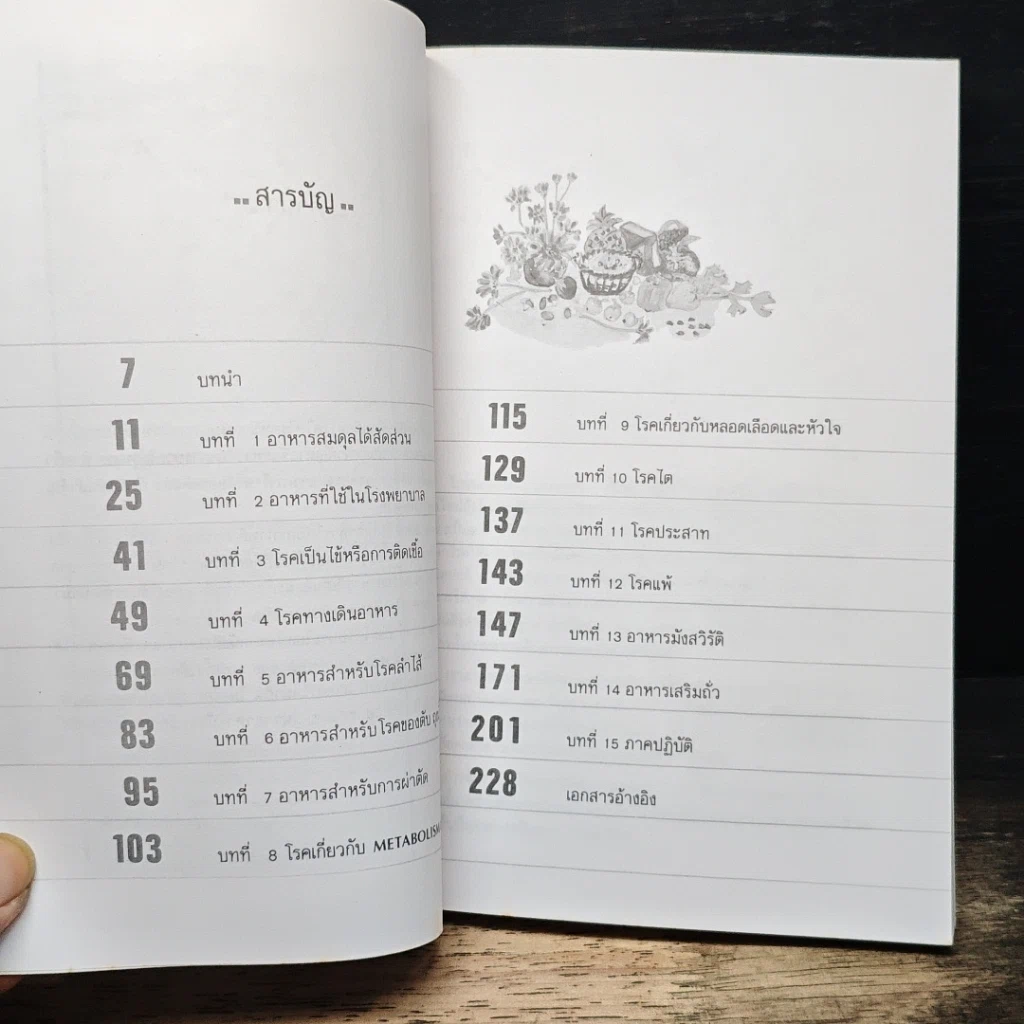 สารบัญ
7 บทนำ
11 บทที่ 1 อาหารสมดุลได้สัดส่วน
25 บทที่ 2 อาหารที่ใช้ในโรงพยาบาล
41 บทที่ 3 โรคเป็นไข้หรือการติดเชื้อ
49 บทที่ 4 โรคทางเดินอาหาร
69 บทที่ 5 อาหารสำหรับโรคลำไส้
83 บทที่ 6 อาหารสำหรับโรคของตับ
95 บทที่ 7 อาหารสำหรับการผ่าตัด
103 บทที่ 8 โรคเกี่ยวกับ METABOLISM
115 บทที่ 9 โรคเกี่ยวกับหลอดเลือดและหัวใจ
129 บทที่ 10 โรคไต
137 บทที่ 11 โรคประสาท
143 บทที่ 12 โรคแพ้
147 บทที่ 13 อาหารมังสวิรัติ
171 บทที่ 14 อาหารเสริมถั่ว
201 บทที่ 15 ภาคปฏิบัติ
228 เอกสารอ้างอิง